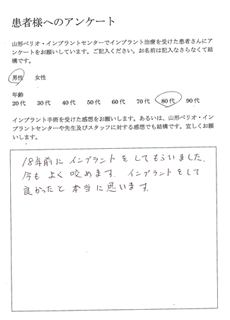 患者様へのアンケート
山形ペリオ・インプラントセンターでインプラント治療を受けた患者さんにア
ンケートをお願いしています。ご記入ください。お名前は記入なさらなくて結
構です。
男性 女性
年齢
20代 30代 40代 50代 60代 70代 80代 90代
インプラント手術を受けた感想をお願いします。あるいは、山形ペリオ・イン
プラントセンターや先生及びスタッフに対する感想でも結構です。宜しくお願
いします。
18年前にインプラントをしてもらいました。
今もよく咬めます。インプラントをして
良かったと本当に思います。